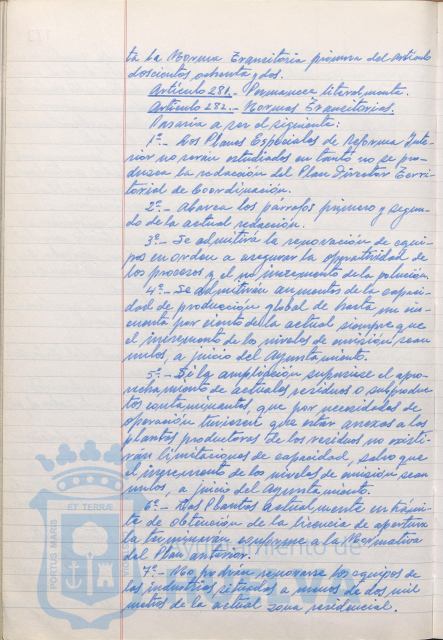 ta la Norma Transitoria primera del Artículo
doscientos ochenta y dos.
Artículo 281.- Permanece literalmente.
Artículo 282.- Normas Transitorias.
Pasaría a ser el siguiente:
1ª.- Los Planes Especiales de Reforma Inte-
rior no serán estudiados en tanto no se pro-
duzca la redacción del Plan Director Terri-
torial de Coordinación.
2ª.- Abarca los párrafos primero y segun-
do de la actual redacción.
3ª.- Se admitirá la renovación de equi-
pos en orden a asegurar la operatividad de
los procesos y el no incremento de la polución.
4ª.- Se admitirán aumentos de la capaci-
dad de producción global de hasta un cin-
cuenta por ciento de la actual siempre que
el incremento de los niveles de emisión sean
nulos, a juicio del Ayuntamiento.
5ª.- Si la ampliación supusiese el apro-
vechamiento de actuales residuos o subproduc-
tos contaminantes, que por necesidades de
operación tuviesen que estar anexas a las
plantas productoras de los residuos no existi-
rán limitaciones de capacidad, salvo que
el incremento de los niveles de emisión sean
nulos, a juicio del Ayuntamiento.
6ª.- Las Plantas actualmente en trámi-
te de obtención de la licencia de apertura
la tramitarán conforme a la Normativa
del Plan anterior.
7ª.- No podrán renovarse los equipos de
las industrias situadas a menos de dos mil
metros de la actual zona residencial.
PORTUS MARIS
ET TERRÆ